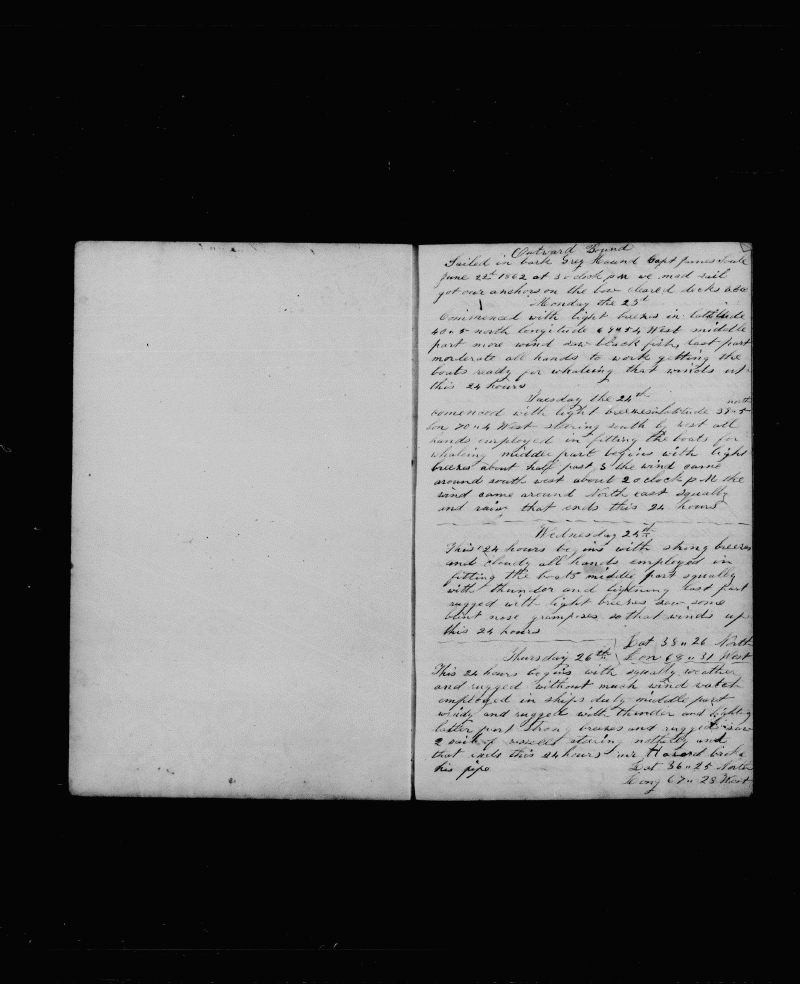 Outward Bound
Sailed in bark Grey Hound Capt James Soule
June 22d 1862 at 3 oclock pm we mad sail
got our anchors on the bow cleared decks
Monday the 23d
Commenced with light breezes in latitude
40 " 5 north longitude 69 " 54 West middle
part more wind saw black fish, last part
morderate all hands to work getting the
boats ready for whaleing that winds up
this 24 hours
Tuesday the 24th
north
comenced with light breezes in latitude 39 " 5
lon 70 " 4 West stearing south by west all
hands employed in fitting the boats for
whaleing middle part begins with light
breezes about half past 3 the wind came
around south west about 2 oclock p.M the
wind came around North east squally
and rain that ends this 24 hours
Wednesday 25th
This 24 hours begins with strong breezes
and cloudy all hands employed in
fitting the boats middle part squally
with thunder and lightning last part
rugged with light breezes saw some
blunt nose grampuses so that winds up
this 24 hours
Lat 38 " 26 North
Thursday 26th Lon 68 " 31 West
This 24 hours begins with squally weather
and rugged without much wind watch
employed in ships duty middle part
windy and rugged with thunder and lightning
latter part strong breezes and rugged saw
2 sail of vessels stearing notherly and
that ends this 24 hours mr Havard broke
his pipe
Lat 36 " 25 North
Long 67 " 28 West